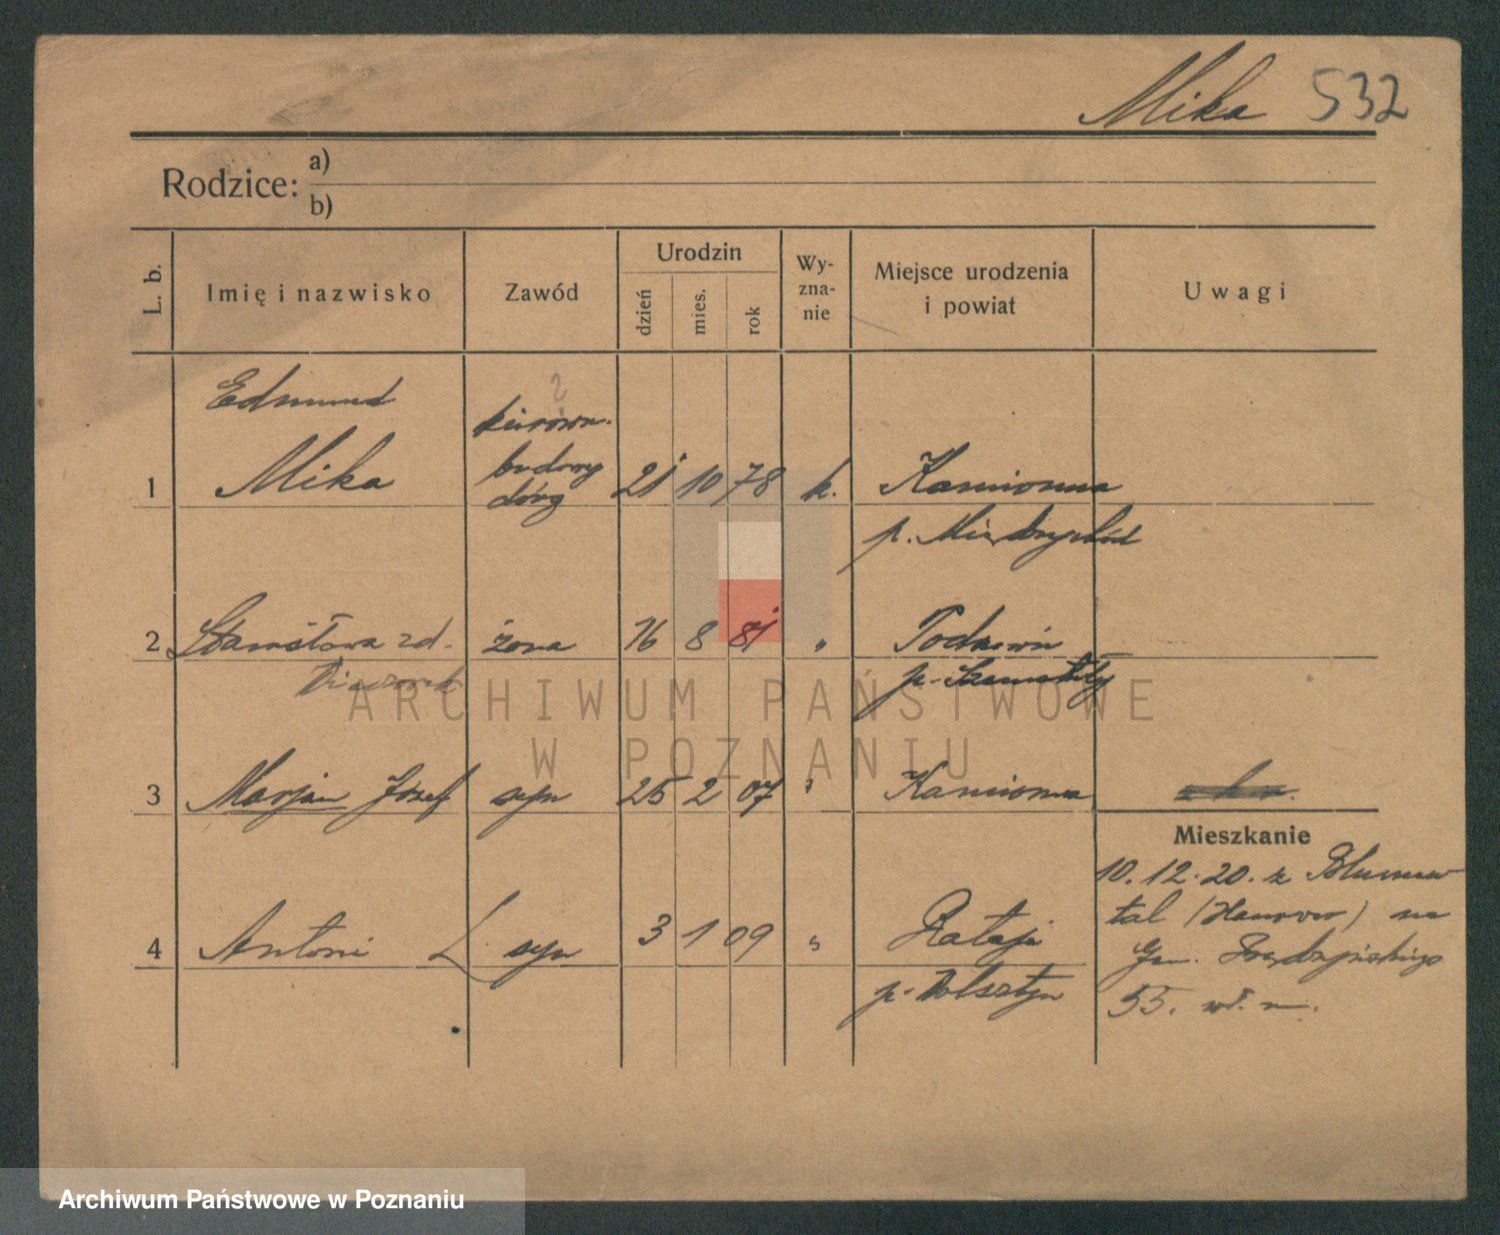 Mika 532
Rodzice: a)
b)
L. b. Imię i nazwisko Zawód Urodzin dzień mies. rok Wyznanie Miejsce urodzenia i powiat Uwagi
Edmund
kierown.
1 Mika budowy 21 10 78 k. Kamionna
dróg
p. Międzychód
2 Stanisława zd. żona 16 8 81 " 
p. Szamotuły
ARCHIWUM PAŃSTWOWE
W POZNANIU
3 Marjan Józef syn 25 2 07 " Kamionna
Mieszkanie
10. 12. 20. z Blumen
tal (Hannover) na
4 Antoni syn 3 1 09 " Rataje
Prądzyńskiego
p. Wolsztyn
55.
Archiwum Państwowe w Poznaniu